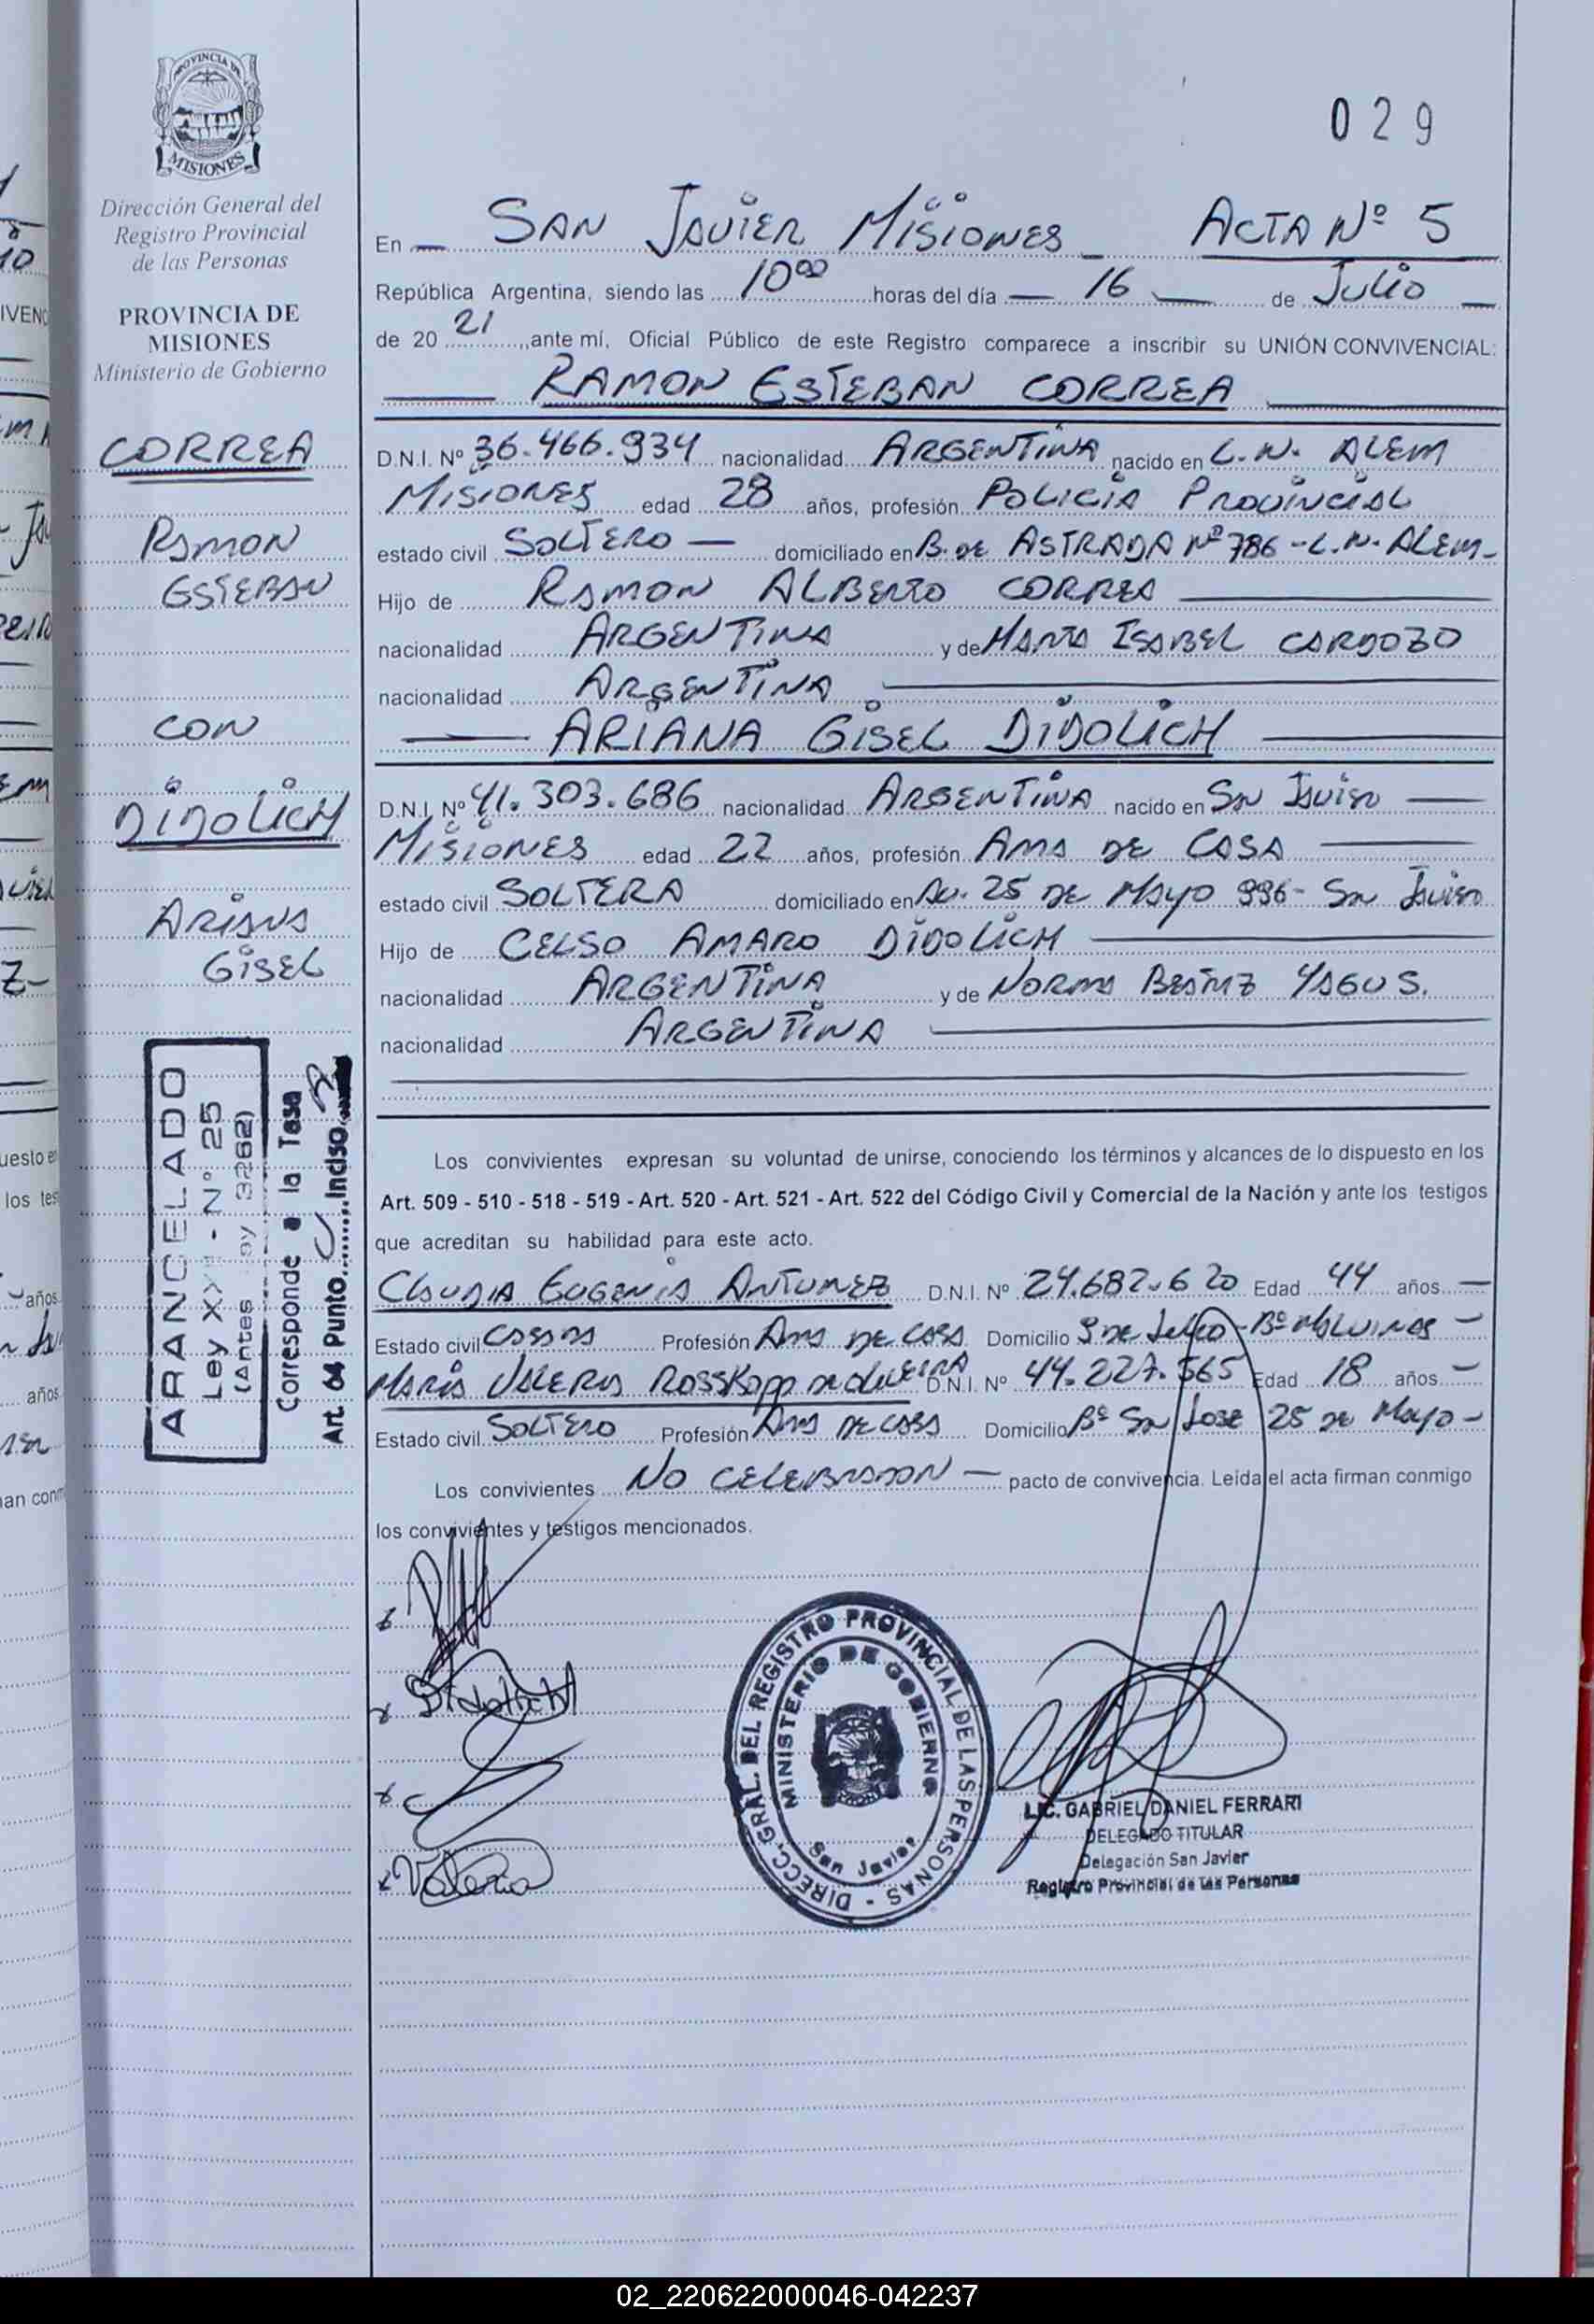 029
PROVINCIA DE
MISIONES
Dirección General del
Registro Provincial
de las Personas
PROVINCIA DE
MISIONES
Ministerio de Gobierno
CORREA
RAMON
ESTEBAN
CON
DIDOLICH
ARIANA
GISEL
ARANCELADO
Ley XX - Nº 25
(Antes Ley 3262)
Corresponde a la Tasa
Art. 64 Punto Inciso
En SAN JAVIER MISIONES ACTA Nº 5
República Argentina, siendo las 10⁰⁰ horas del día 16 de JULIO
de 2021, ante mí, Oficial Público de este Registro comparece a inscribir su UNIÓN CONVIVENCIAL:
RAMON ESTEBAN CORREA
D.N.I. Nº 36.466.934 nacionalidad ARGENTINA nacido en L.N. ALEM
MISIONES edad 28 años, profesión POLICIA PROVINCIAL
estado civil SOLTERO domiciliado en B. DE ASTRADA Nº 786 - L.N. ALEM-
Hijo de RAMON ALBERTO CORREA
nacionalidad ARGENTINA y de MARTA ISABEL CARDOZO
nacionalidad ARGENTINA
ARIANA GISEL DIDOLICH
D.N.I. Nº 41.303.686 nacionalidad ARGENTINA nacido en SAN JAVIER
MISIONES edad 22 años, profesión AMA DE CASA
estado civil SOLTERA domiciliado en AV. 25 DE MAYO 996 - SAN JAVIER
Hijo de CELSO AMARO DIDOLICH
nacionalidad ARGENTINA y de NORMA BEATRIZ YAGUS.
nacionalidad ARGENTINA
Los convivientes expresan su voluntad de unirse, conociendo los términos y alcances de lo dispuesto en los
Art. 509 - 510 - 518 - 519 - Art. 520 - Art. 521 - Art. 522 del Código Civil y Comercial de la Nación y ante los testigos
que acreditan su habilidad para este acto.
CLAUDIA EUGENIA ANTUNEZ D.N.I. Nº 24.682.620 Edad 44 años
Estado civil CASADA Profesión AMA DE CASA Domicilio 9 DE JULIO - Bº MALVINAS -
MARIA VALERIA ROSSKOPP DE OLIVEIRA D.N.I. Nº 44.227.565 Edad 18 años
Estado civil SOLTERO Profesión AMA DE CASA Domicilio Bº SAN JOSE 25 DE MAYO -
Los convivientes NO CELEBRARON pacto de convivencia. Leída el acta firman conmigo
los convivientes y testigos mencionados.
Didolich A
Valeria
DIRECC. GRAL. DEL REGISTRO PROVINCIAL DE LAS PERSONAS -
MINISTERIO DE GOBIERNO
San Javier
LIC. GABRIEL DANIEL FERRARI
DELEGADO TITULAR
Delegación San Javier
Registro Provincial de las Personas
02_220622000046-042237